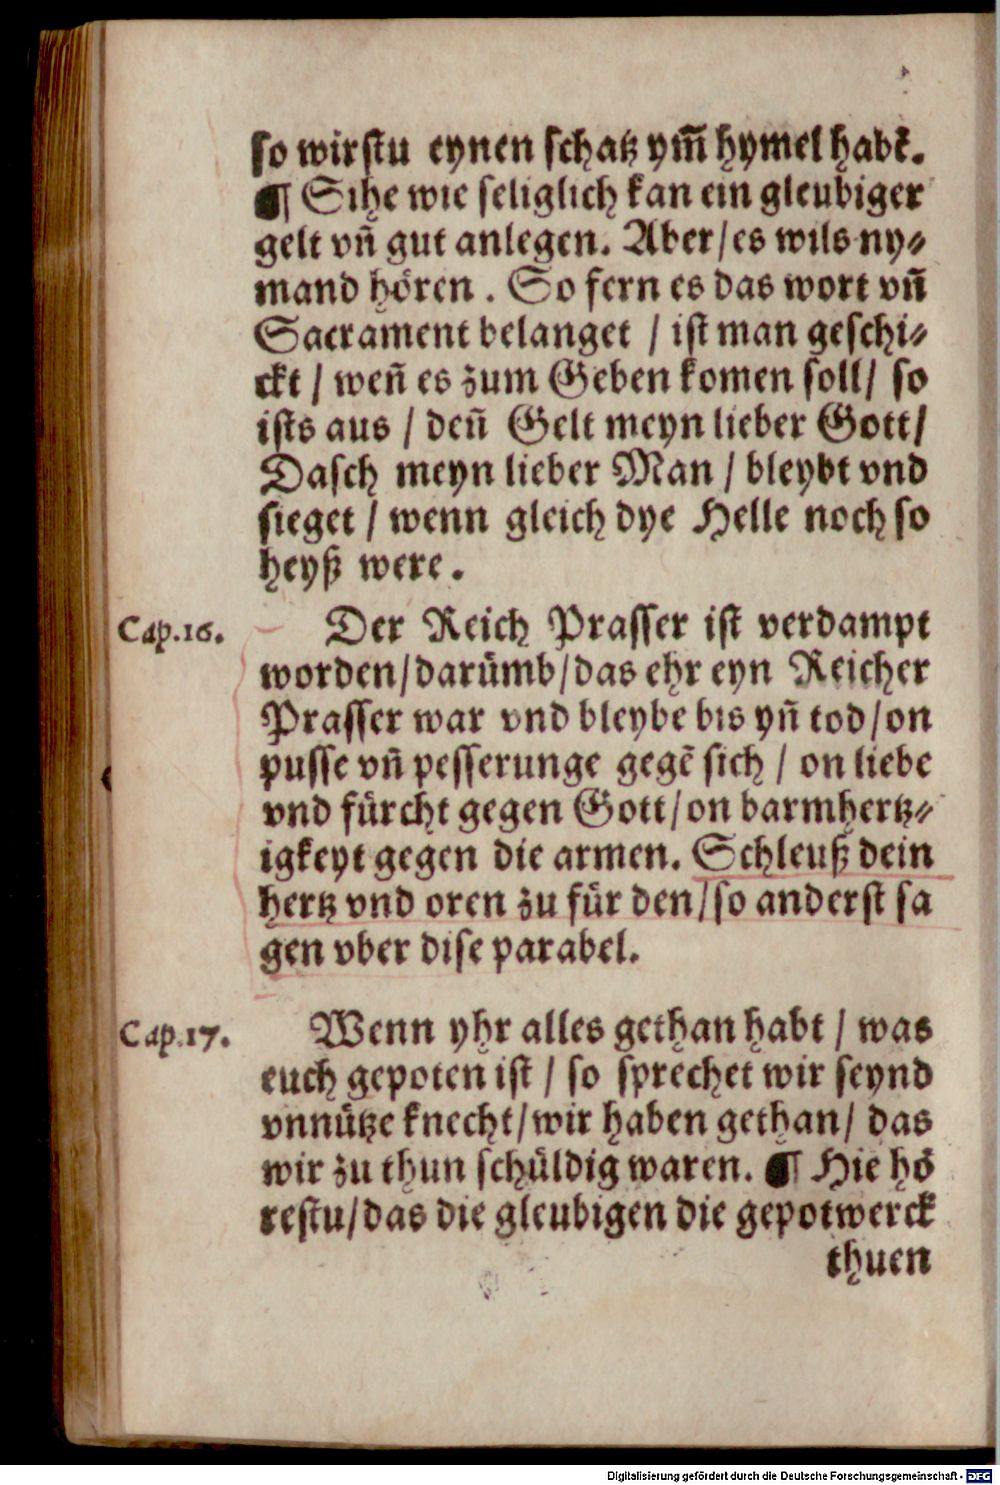 so wirstu eynen schatz ym̃ hymel habẽ.
¶ Sihe wie seliglich kan ein gleubiger
gelt vñ gut anlegen. Aber/es wils ny⸗
mand hören . So fern es das wort vñ
Sacrament belanget / ist man geschi⸗
ckt / weñ es zum Geben komen soll/ so
ists aus / deñ Gelt meyn lieber Gott/
Dasch meyn lieber Man / bleybt vnd
sieget / wenn gleich dye Helle noch so
heyß were .
Cap.16. Der Reich Prasser ist verdampt
worden/darümb/das ehr eyn Reicher
Prasser war vnd bleybe bis yñ tod/on
pusse vñ pesserunge gegẽ sich / on liebe
vnd fürcht gegen Gott/on barmhertz⸗
igkeyt gegen die armen. Schleuß dein
hertz vnd oren zu für den/so anderst sa
gen vber dise parabel.
Cap.17. Wenn yhr alles gethan habt / was
euch gepoten ist / so sprechet wir seynd
vnnütze knecht/wir haben gethan/ das
wir zu thun schüldig waren. ¶ Hie hö
restu/das die gleubigen die gepotwerck
thuen
Digitalisierung gefördert durch die Deutsche Forschungsgemeinschaft - DFG